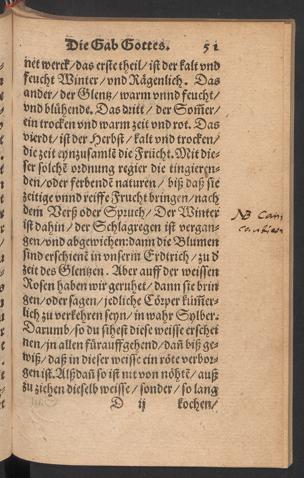 Die Gab Gottes. 51
net werck/ das erste theil/ ist der kalt vnd
feucht Winter/ vnd Rägenlich. Das
ander/ der Glentz/ warm vnnd feucht/
vnd blühende. Das dritt/ der Som̃er/
ein trocken vnd warm zeit vnd rot. Das
vierdt/ ist der Herbst/ kalt vnd trocken/
die zeit eynzusamlẽ die Frücht. Mit die-
ser solchẽ ordnung regier die tingieren-
den/ oder ferbendẽ naturen/ biß daß sie
zeitige vnnd reiffe Frucht bringen/ nach
dem Verß oder Spruch/ Der Winter
ist dahin/ der Schlagregen ist vergan-
gen/ vnd abgewichen: dann die Blumen
sind erschienẽ in vnserm Erdtrich/ zu d
zeit des Glentzen. Aber auff der weissen
Rosen haben wir geruhet/ dann sie brin
gen/ oder sagen/ jedliche Cörper küm̃er-
lich zu verkehren seyn/ in wahr Sylber.
Darumb/ so du sihest diese weisse erschei
nen/ jn allen fürauffgehend/ dañ biß ge-
wiß/ daß in dieser weisse ein röte verbor-
gen ist. Alßdañ so ist mit von nöhtẽ/ auß
zu ziehen dieselb weisse/ sonder/ so lang
D ij kochen/
NB